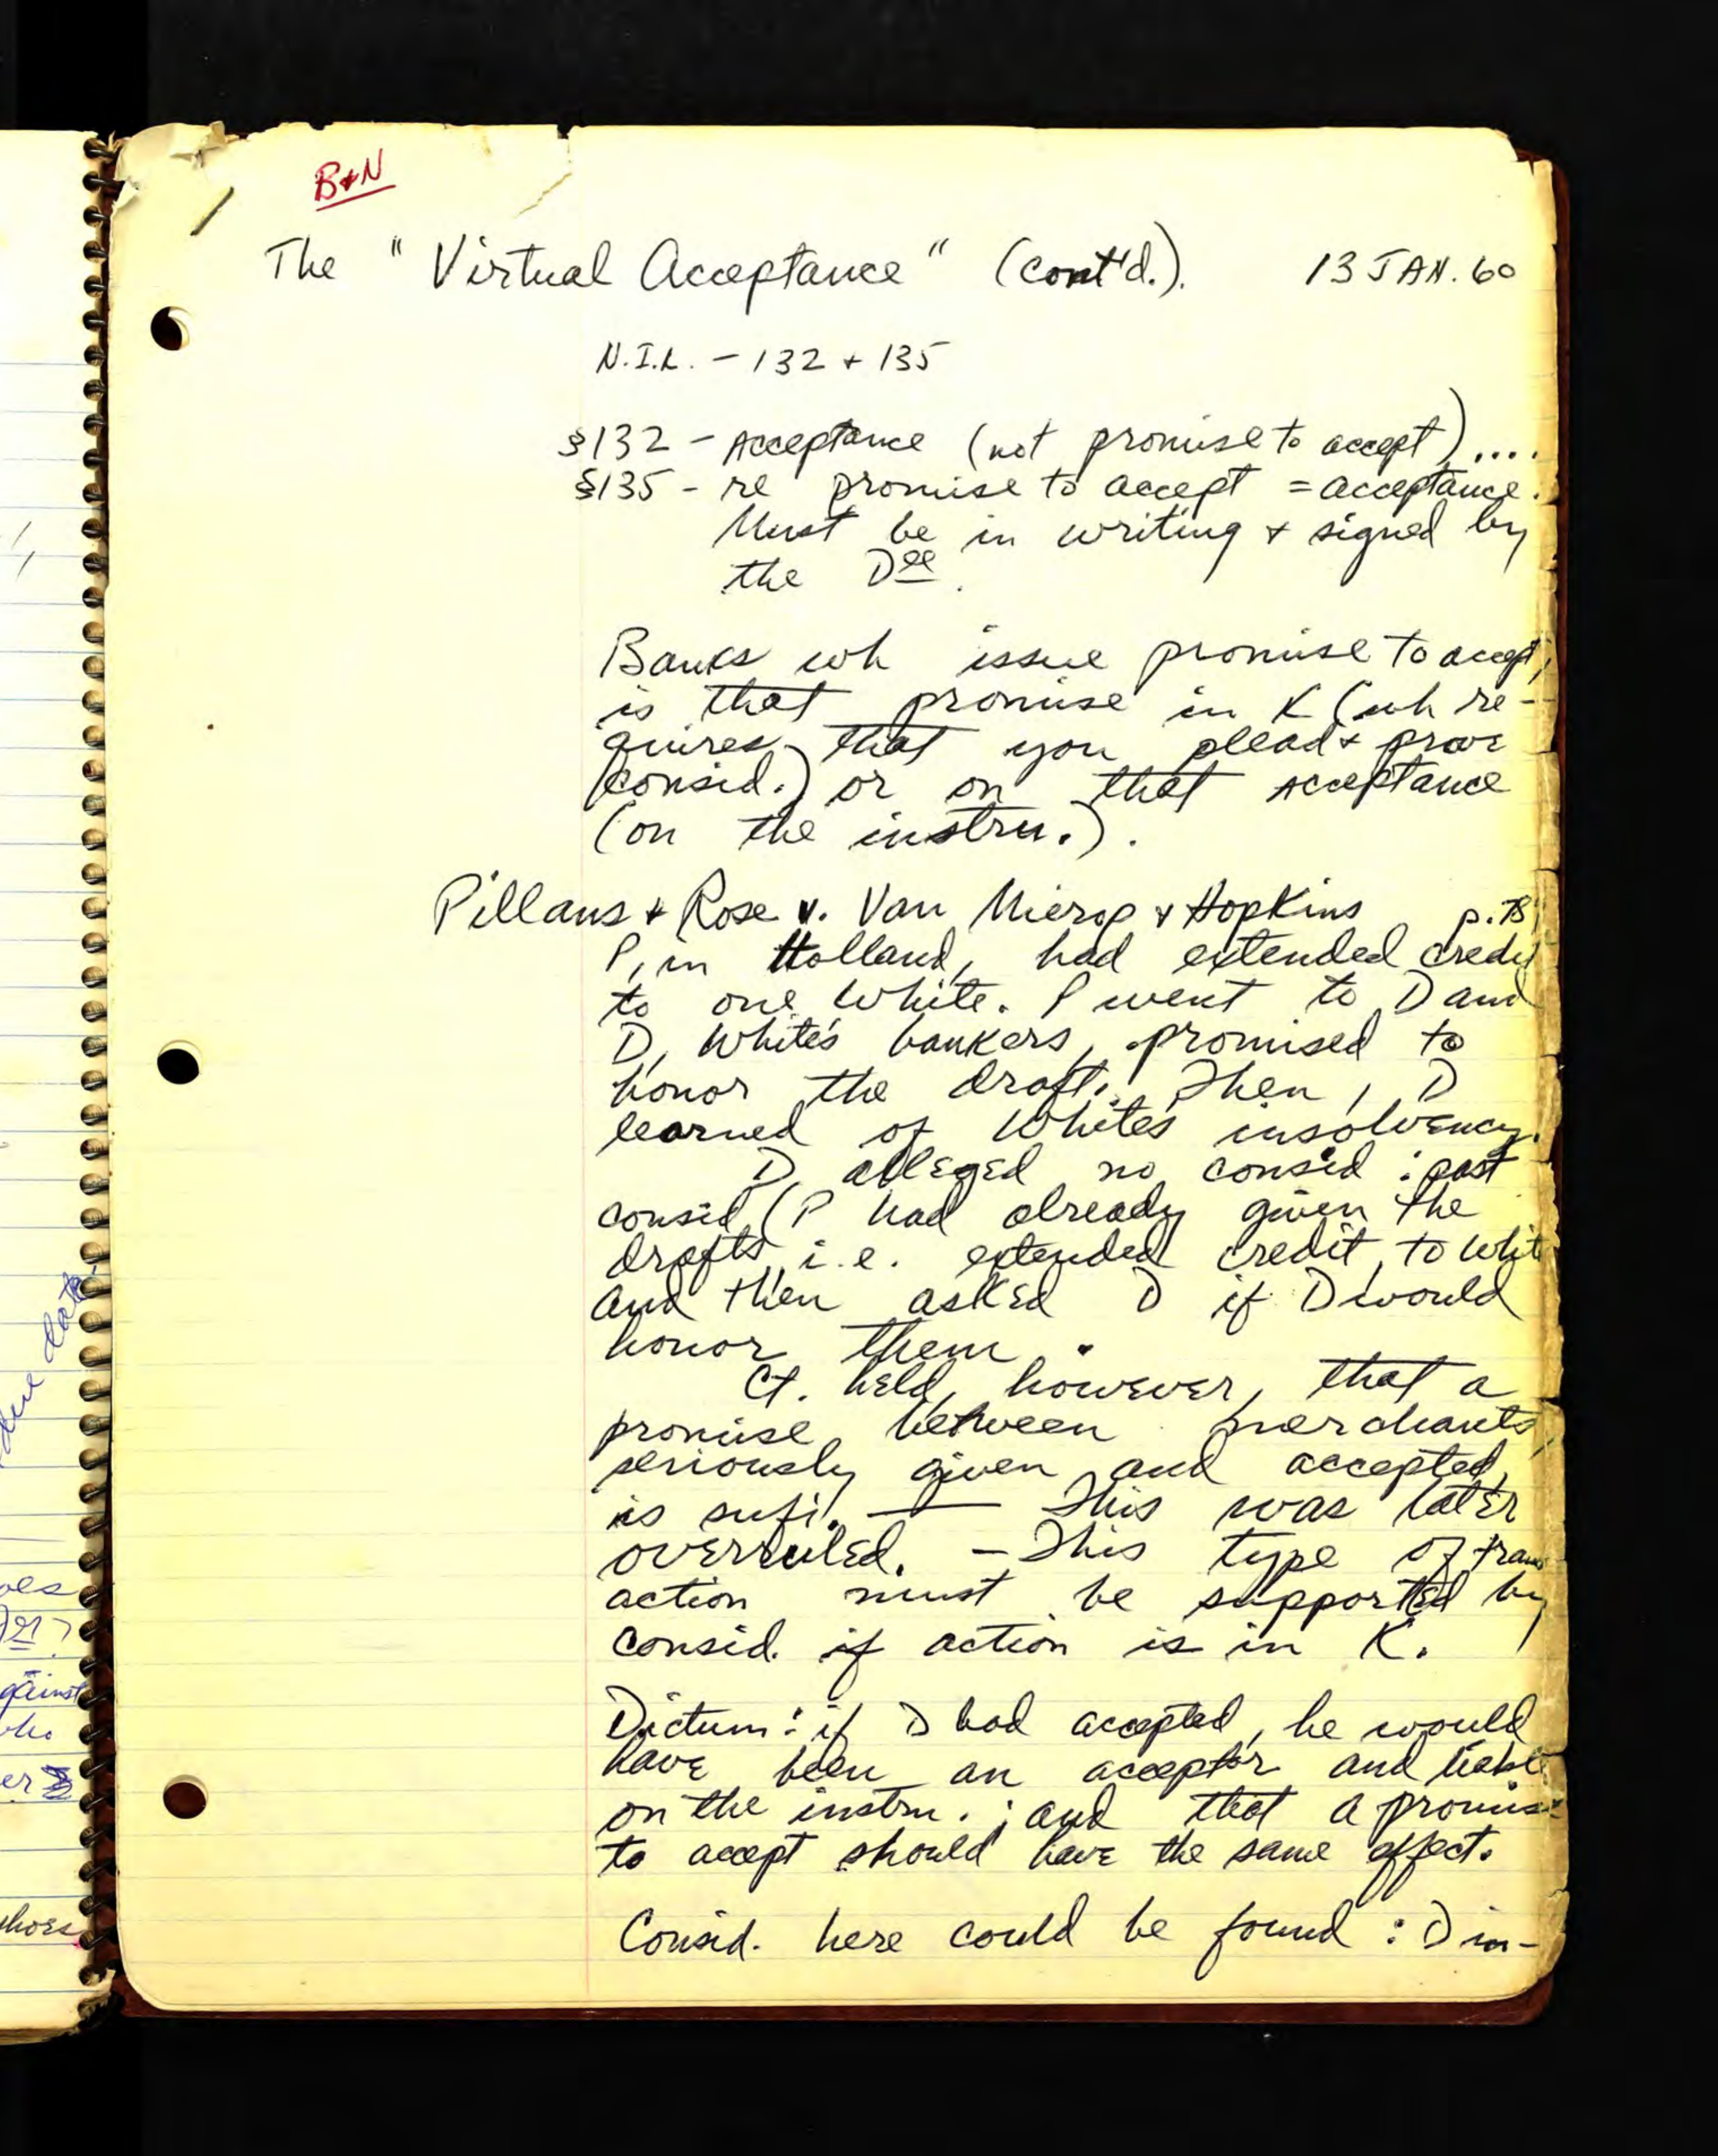 B+N
The "Virtual Acceptance" (cont'd.). 13 JAN. 60
N.I.L. - 132 + 135
§132 - Acceptance (not promise to accept)....
§135 - re promise to accept = acceptance.
Must be in writing + signed by
the Dee.
Banks wh issue promise to accept,
is that promise in K (wh re-
quires that you plead + prove
consid.) or on that acceptance
(on the instru.).
Pillans + Rose v. Van Mierop + Hopkins p. 78
P, in Holland, had extended credit
to one White. P went to D and
D, White's bankers, promised to
honor the draft. Then, D
learned of White's insolvency.
D alleged no consid : past
consid (P had already given the
drafts, i.e. extended credit, to Whit
and then asked D if D would
honor them .
Ct. held, however, that a
promise, between merchants,
seriously given and accepted,
is sufi. — This was later
overruled. - This type of trans
action must be supported by
consid. if action is in K.
Dictum: if D had accepted, he would
have been an acceptor and liabl
on the instru. ; and that a promise
to accept should have the same affect.
Consid. here could be found : D in-
due date
oes
Der>
gainst
who
er
hors